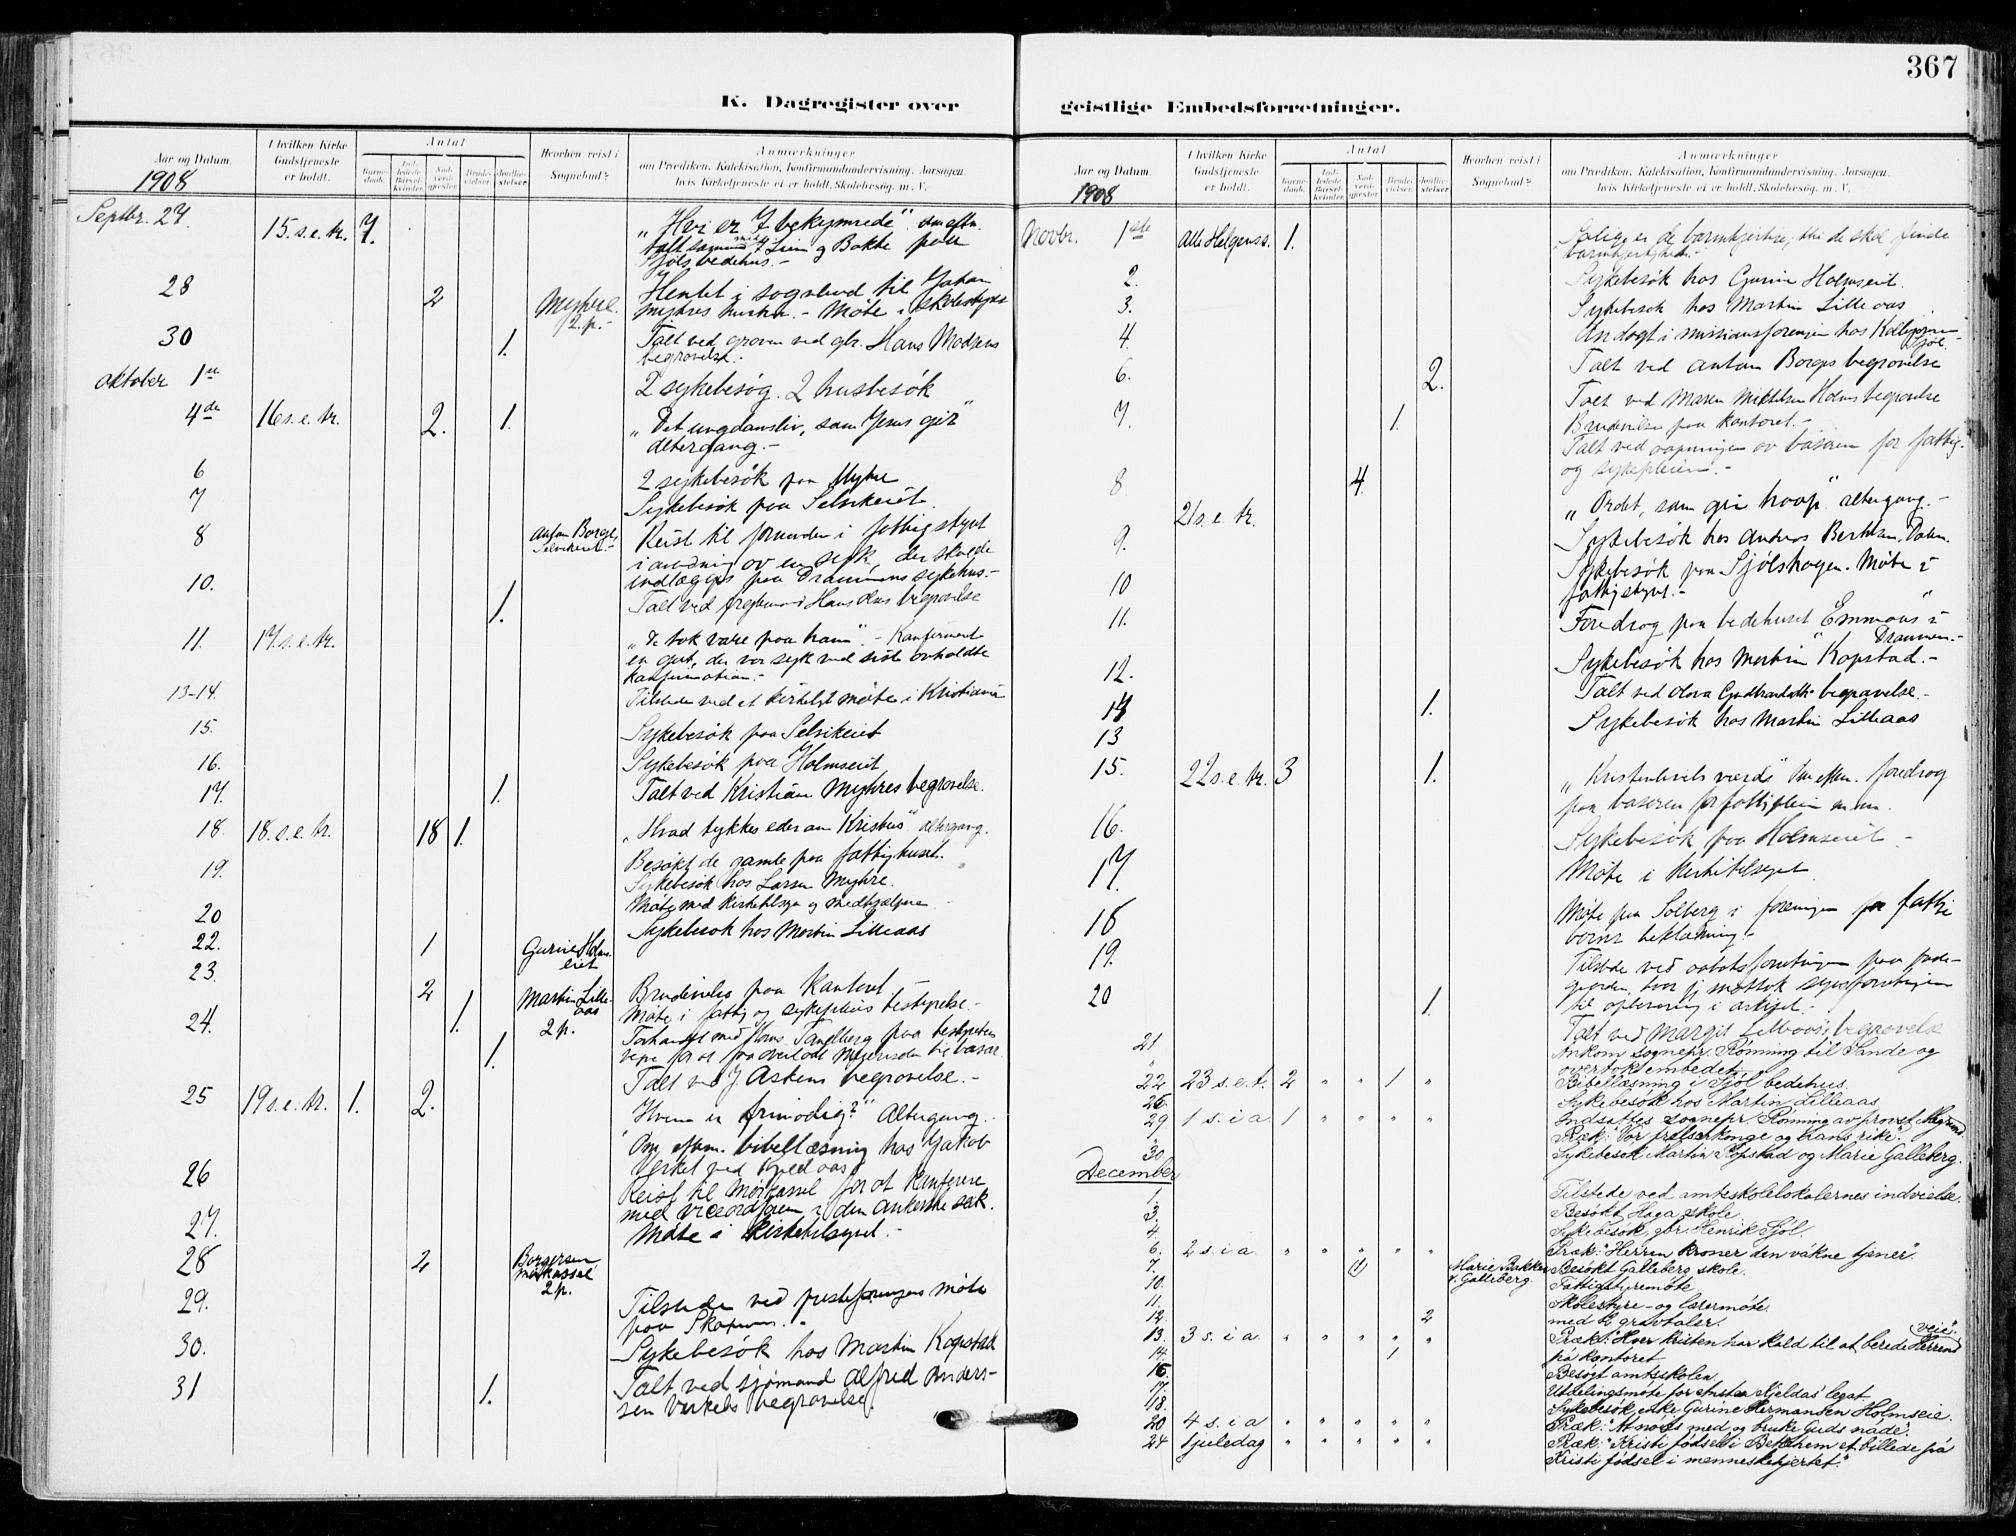 367
K. Dagregister over
geistlige Embedsforretninger.
Aar og Datum.
1908
I hvilken Kirke
Gudstjeneste
er holdt.
Antal
Barne-
daab.
Ind-
ledede
Barsel-
kvinder.
Nad-
verd-
gjester.
Brude-
vielser.
Jordfæ-
stelser.
Hvorhen reist i
Sognebud?
Anmærkninger
om Prædiken, Katekisation, Konfirmandundervisning, Aarsagen,
hvis Kirketjeneste ei er holdt, Skolebesøg, m. V.
Septbr. 27. 15. s. e. tr. 7. "Hvi er I bekymrede"
Sjøls bedehus.-
28 2 Myhre. 2 p.- Hentet i sognebud til Johan
Myhres hustru. - Møte i skolestyret
30 1. Talt ved graven ved gbr. Hans Madsens
begravelse.
Oktober 1ste 2 sykebesøg. 2 husbesøk
4de 16 s. e. tr. 2. 1. "Det ungdomsliv, som Jesus gir"
altergang.-
6 2 sykebesøk paa Myhre
7 Sykebesøk paa Selvikeiet.
8 Anton Borge, Selvikeiet.- Reist til formanden i fattigstyret
i anledning av en syk, der skulde
indlægges paa Drammens sykehus.-
10. 1. Talt ved Hans Olsens begravelse
11. 17. s. e. tr. "De tok vare paa ham". - Konfirmerte
en gut, der var syk ved siste avholdte
konfirmation.-
13-14. Tilstede ved et kirkeligt møte i Kristiania
15. Sykebesøk paa Selvikeiet
16. Sykebesøk paa Holmseiet
17. 1. Talt ved Kristian Myhres begravelse.
18. 18. s. e. tr. 18 1. "Hvad tykkes eder om Kristus" altergang.
19. Besøkt de gamle paa fattighuset.
Sykebesøk hos Larsen Myhre.
20 Møte med kirketilsyn og medhjælpere
22. 1 Gurine Holms-
eiet Sykebesøk hos Martin Lilleaas
23. 2 Martin Lille-
aas
2 p. Brudevielse paa Kontoret -
24. 1. Møte i fattig og sykepleiens bestyrelse.-
1. Talt ved J. Askens begravelse.-
25 19 s. e. tr. 1. 2. "Hvem er frimodig?" Altergang.
Om efterm. bibellæsning hos Jakob
26 Reist til Mørkassel for at konferere
med viceordføren i den ankerske sak.
27. Møte i kirketilsynet.-
28 2 Borgersen
Mørkassel
2 p.
29. Tilstede ved
paa
30. Sykebesøk hos Martin Kopstad
31 1. Talt ved sjømand Alfred Anders-
sen Virkets begravelse.
Aar og Datum.
1908
I hvilken Kirke
Gudstjeneste
er holdt.
Antal
Barne-
daab.
Ind-
ledede
Barsel-
kvinder.
Nad-
verd-
gjester.
Brude-
vielser.
Jordfæ-
stelser.
Hvorhen reist i
Sognebud?
Anmærkninger
om Prædiken, Katekisation, Konfirmandundervisning, Aarsagen,
hvis Kirketjeneste ei er holdt, Skolebesøg, m. V.
Novbr. 1ste Alle Helgenss. 1. Salig er de barmhjertige, thi de skal finde
barmhjertighed.-
2. Sykebesøk hos Gurine Holmseiet.
3. Sykebesøk hos Martin Lilleaas
4. Andagt i missionsforeningen hos
Sjøl.-
6. 2. Talt ved Anton Borges begravelse
Talt ved Maren Mikkelsen Holms begravelse
7. 1. Brudevielse paa kontoret.-
Talt ved aapningen av basaren for fattig-
og sykepleien.-
8 21 s. e. tr. 4. "Ordet, som gir haap". altergang.-
9. Sykebesøk hos Andreas Berthelsen, Dalen.
10 Sykebesøk paa Sjølshagen. Møte i
fattigstyret.-
11. Foredrag paa bedehuset "Emmaus" i
Drammen.-
12. Sykebesøk hos Martin Kopstad.-
14 1. Talt ved Olava begravelse.-
13 Sykebesøk hos Martin Lilleaas
15. 22 s. e. tr. 3 1. "Kristenlivets værdi" Om eftm. foredrag
paa basaren for fattigpleien m.m.
16. Sykebesøk paa Holmseiet -
17. Møte i kirketilsynet.
18 Møte paa Solberg i foreningen for fattige
børns beklædning.-
19. Tilstede ved aabotsforretningen paa præste-
gaarden, hvor jeg mottok synsforretningen
til opbevaring i arkivet.-
20 1. Talt ved Margit Lilleaas's begravelse
21 Ankom sognepr. Rønning til Sande og
overtok embedet.
" Bibellæsning i Sjøl bedehus.
22 23 s. e. t. 2 " " 1 "
26. Sykebesøk hos Martin Lilleaas
29 1 s. i a 1 " " " " Indsattes sognepr Rønning av provst Mægrund.
" Præk: "Vor frelserkonge og hans rike".
30 Sykebesøk Martin Kopstad og Marie Galleberg.
December
1. Tilstede ved amtskolelokalernes indvielse.
3. Besøkt Haga skole.
4. Sykebesøk, gbr. Henrik Sjøl.
6. 2 s. i a. " " " " " Præk: "Herren kroner den våkne tjener".
7. Marie Bakken
v. Galleberg. Besøkt Galleberg skole.
10. Fattigstyremøte
11. Skolestyre- og lærermøte.
12. 2 med 2 gravtaler.
13. 3 s. i a. " " " " " Præk: "Hver kristen har kald til at berede Herrens veie".
14. 1 på kontoret
16. Besøgt amtsskolen.
17. Utdelingsmøte for Anstea Kjeldås' legat
18. Sykebesøk, enke Gurine Hermansen Holmseie.
20 4 s. i a " " " " " Præk: "At nøies med og bruke Guds nåde".
24 1 juledag " " " " " Præk: "Kristi fødsel i Betlehem et billede på
Kristi fødsel i menneskehjertet."